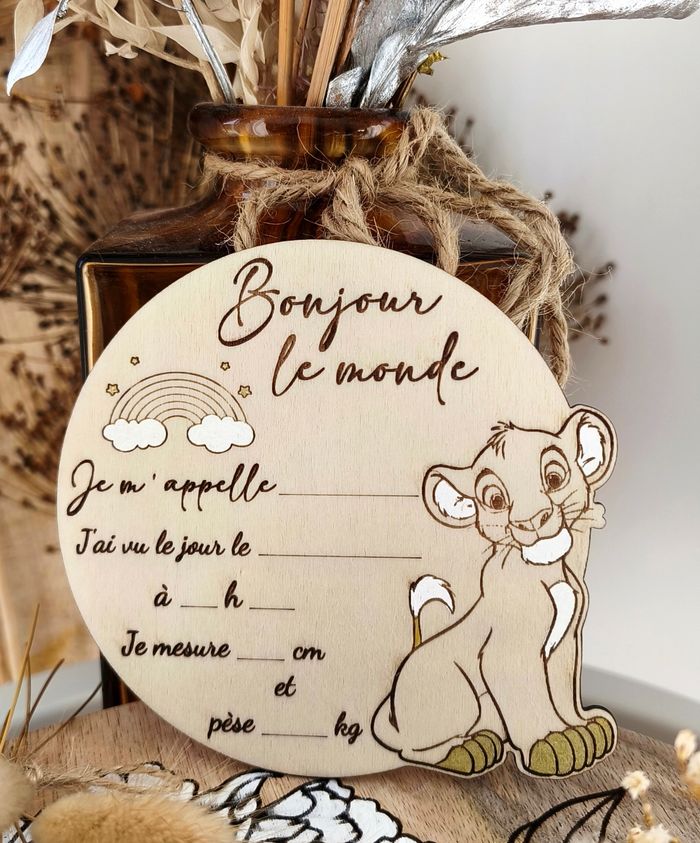 Bonjour
le monde
Je m'appelle ________
J'ai vu le jour le ________
à ___ h ___
Je mesure ____ cm
et
pèse _____ kg